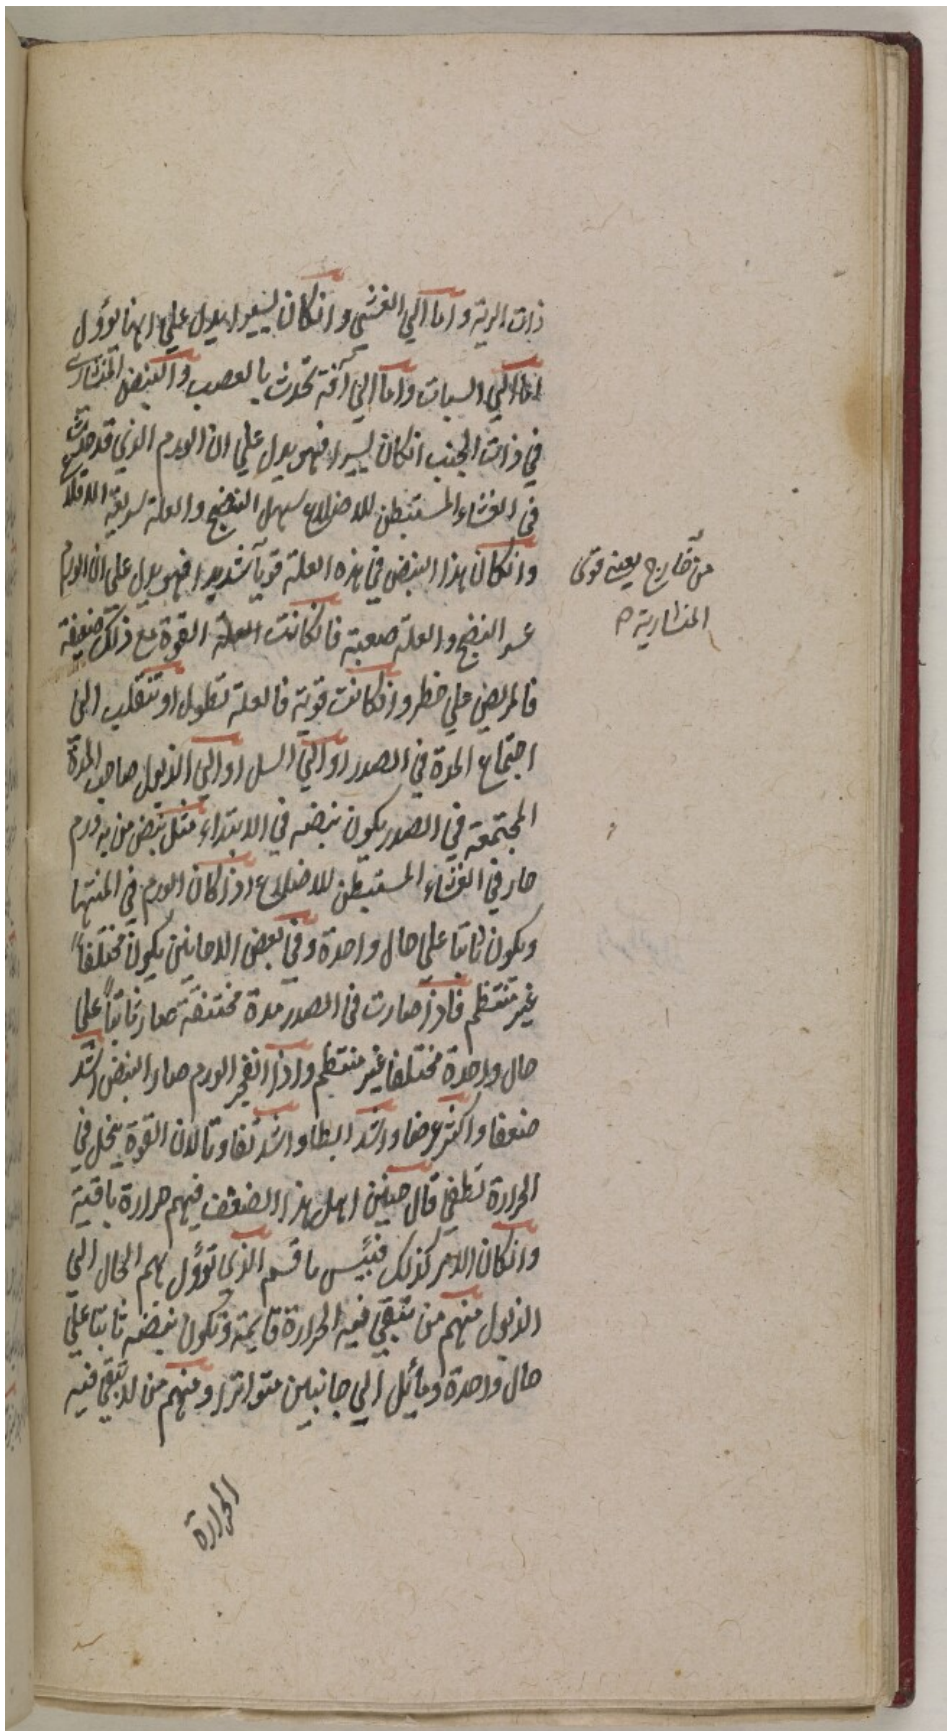 ذات الرية واما الي الغشي وانكان يسيرا يدل علي انها يؤول
اما الي السبات واما الي آفة تحدث بالعصب والنبض المنشاري
في ذات الجنب انكان يسيرا فهو يدل علي ان الورم الذي قد حدث
في الغشاء المستبطن للاضلاع سهل النضج والعلة سريعة
وانكان هذا النبض في هذه العلة قوياً شديدا فهو يدل علي ان الورم
عسر النضج والعلة صعبة فانكانت العلة القوة مع ذلك ضعيفة
فالمريض علي خطر وانكانت قوية فالعلة تطول او تنقلب الي
اجتماع المدة في الصدر او الي السل او الي الذبول صاحب المدة
المجتمعة في الصدر يكون نبضه في الابتداء مثل نبض من به ورم
حار في الغشاء المستبطن للاضلاع اذا كان الورم في المنتها
ويكون ثابتا علي حال واحدة وفي بعض الاحايين يكون مختلفاً
غير منتظم فاذا صارت في الصدر مدة مختنقة صار ثابتاً علي
حال واحدة مختلفا غير منتظم واذا انفجر الورم صار النبض اشد
ضعفا واكثر عرضا واشد ابطا واشد تفاوتا لان القوة ينحل في
الحرارة تطفي قال حنين اهل هذا الضعف فيهم حرارة باقية
وانكان الامر كذلك فبيس ما قسم الذي تؤول بهم الحال الي
الذبول منهم من تبقي فيه الحرارة قايمة ويكون نبضه ثابتا علي
حال واحدة ومائل الي جانبين متواترا ومنهم من لا تبقي فيه
الحرارة
من خارج يعني قوي
المنشارية